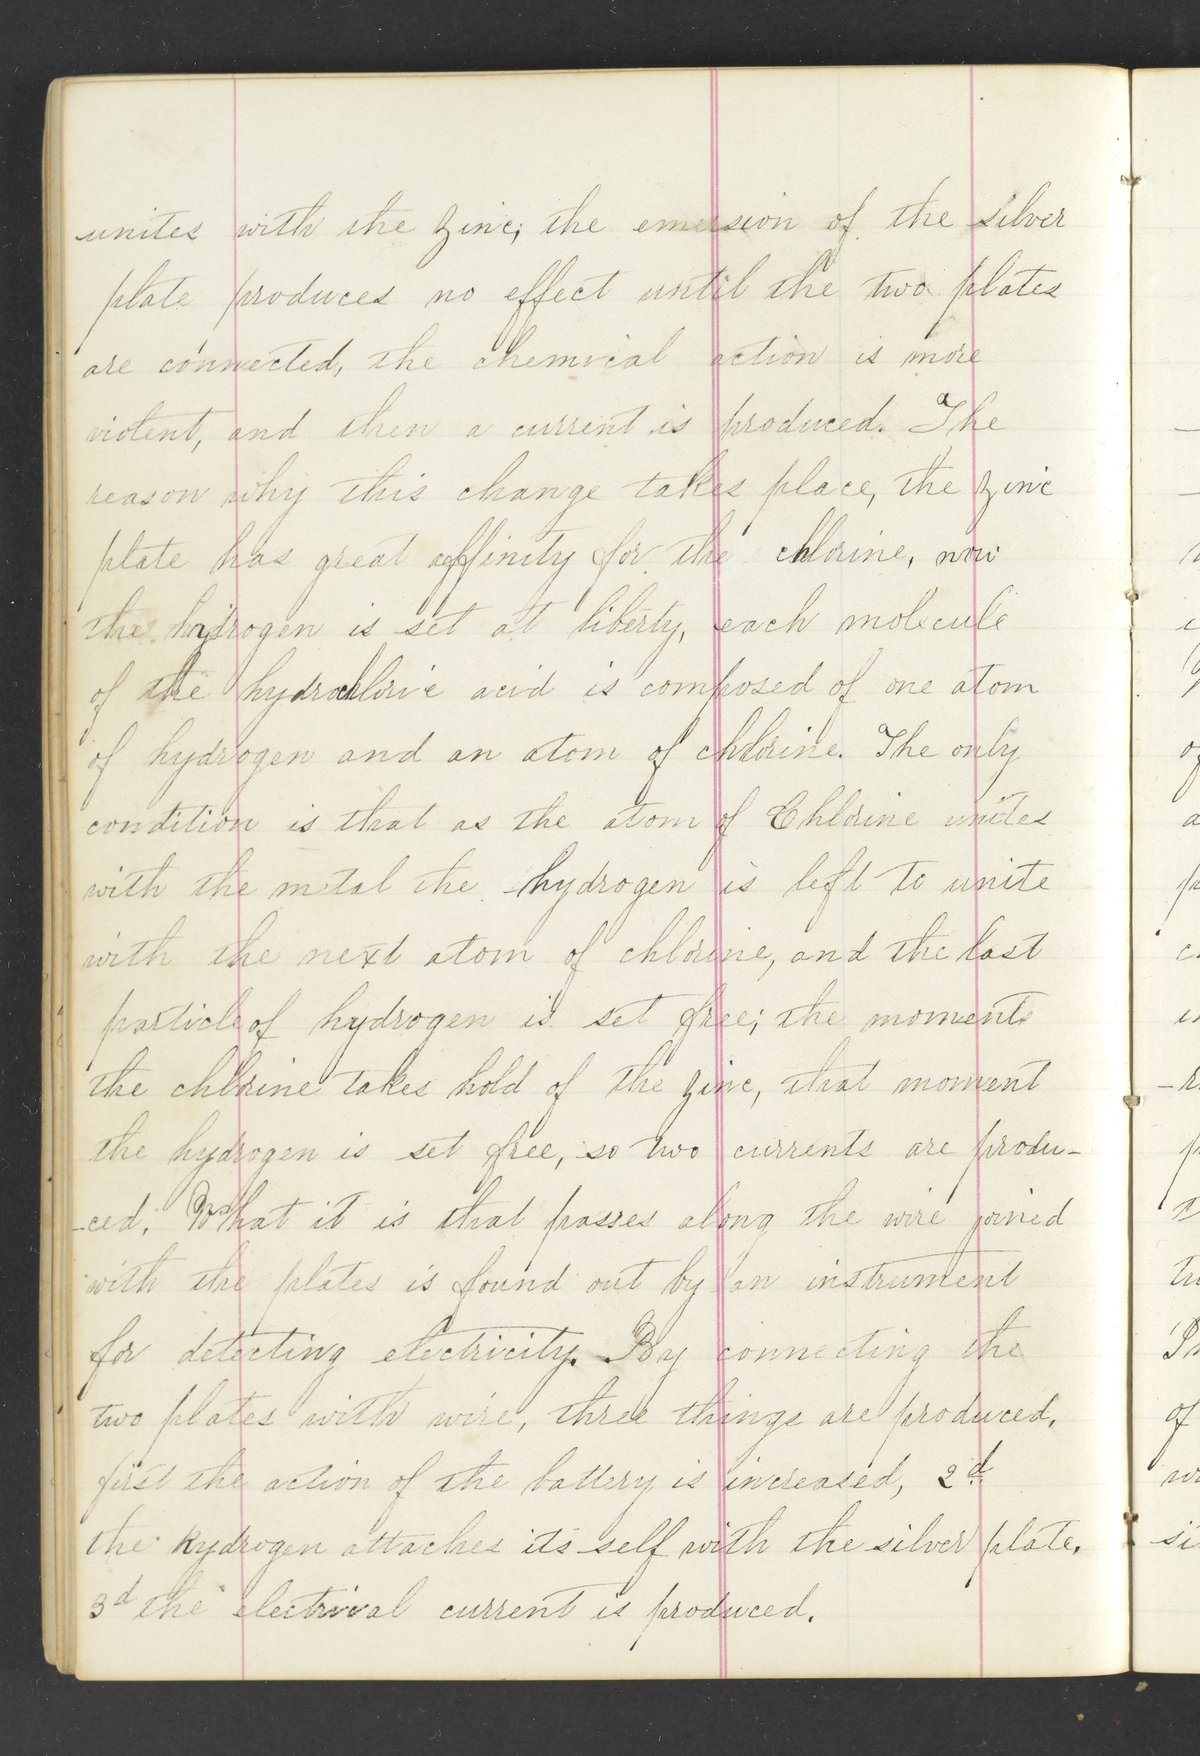 unites with the zinc; the emersion of the silver
plate produces no effect until the two plates
are connected, the chemical action is more
violent, and then a current is produced. The
reason why this change takes place, the zinc
plate has great affinity for the chlorine, now
the hydrogen is set at liberty, each molecule
of the hydrochloric acid is composed of one atom
of hydrogen and an atom of chlorine. The only
condition is that as the atom of Chlorine unites
with the metal the hydrogen is left to unite
with the next atom of chlorine, and the last
particle of hydrogen is set free; the moment
the chlorine takes hold of the zinc, that moment
the hydrogen is set free, so two currents are produ-
-ced. What it is that passes along the wire joined
with the plates is found out by an instrument
for detecting electricity. By connecting the
two plates with wire, three things are produced,
first the action of the battery is increased, 2d
the hydrogen attaches its self with the silver plate.
3d the electrical current is produced.